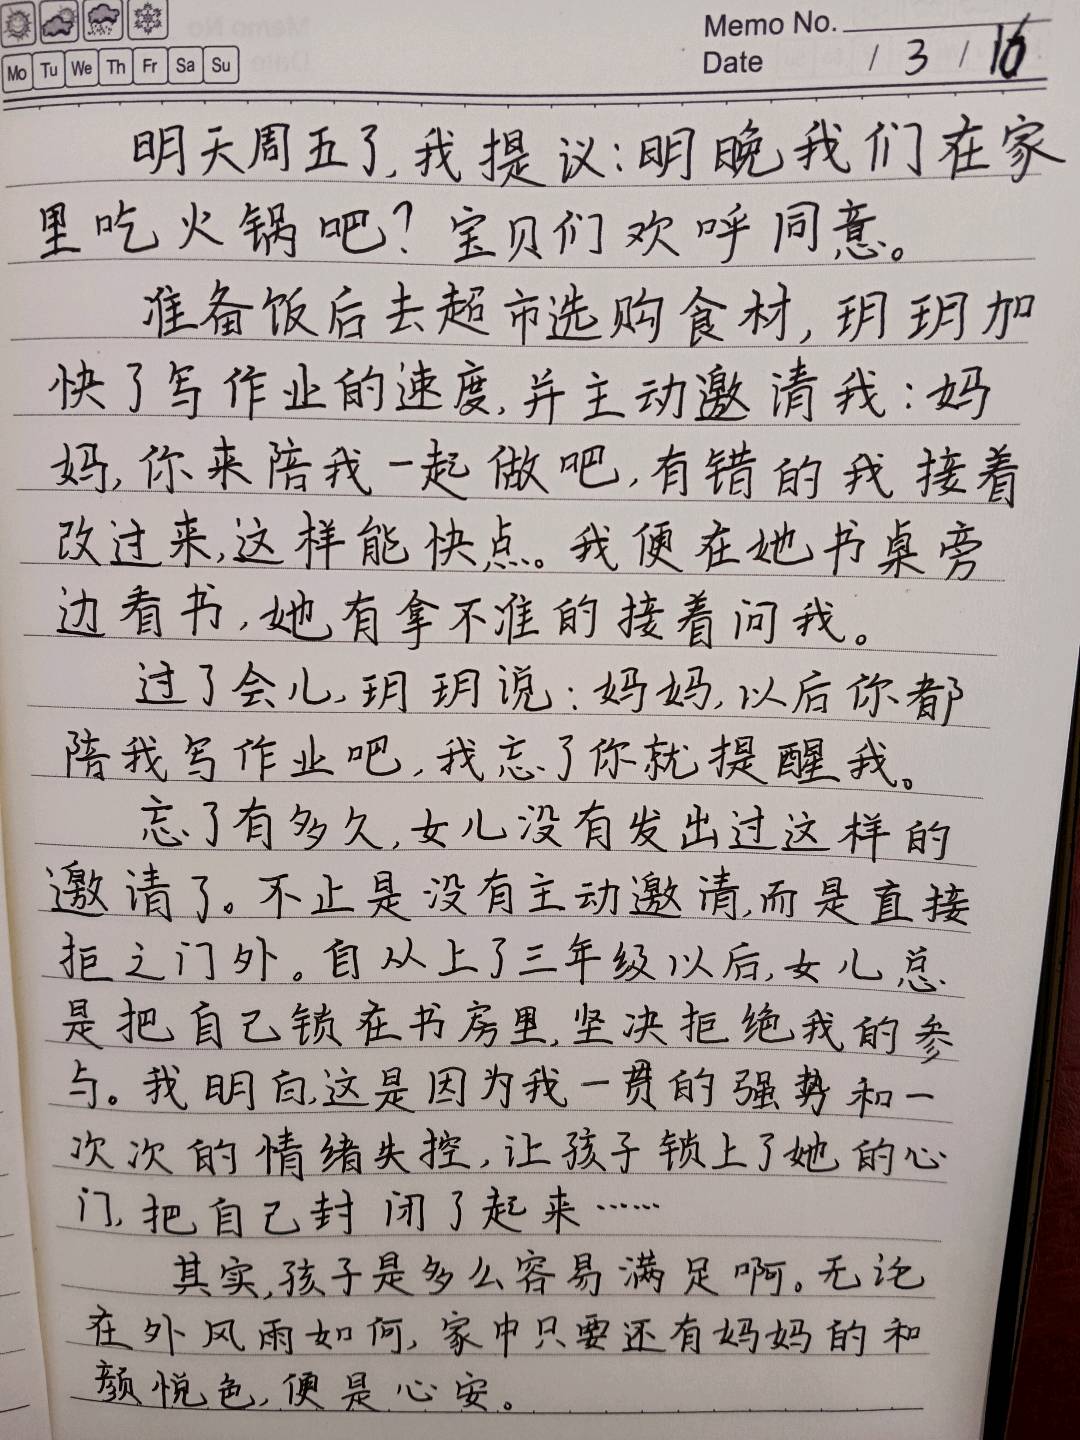 Memo No.
Mo Tu We Th Fr Sa Su
Date / 3 / 16
明天周五了,我提议:明晚我们在家
里吃火锅吧?宝贝们欢呼同意。
准备饭后去超市选购食材,玥玥加
快了写作业的速度,并主动邀请我:妈
妈,你来陪我一起做吧,有错的我接着
改过来,这样能快点。我便在她书桌旁
边看书,她有拿不准的接着问我。
过了会儿,玥玥说:妈妈,以后你都
陪我写作业吧,我忘了你就提醒我。
忘了有多久,女儿没有发出过这样的
邀请了。不止是没有主动邀请,而是直接
拒之门外。自从上了三年级以后,女儿总
是把自己锁在书房里,坚决拒绝我的参
与。我明白,这是因为我一贯的强势和一
次次的情绪失控,让孩子锁上了她的心
门,把自己封闭了起来……
其实,孩子是多么容易满足啊。无论
在外风雨如何,家中只要还有妈妈的和
颜悦色,便是心安。